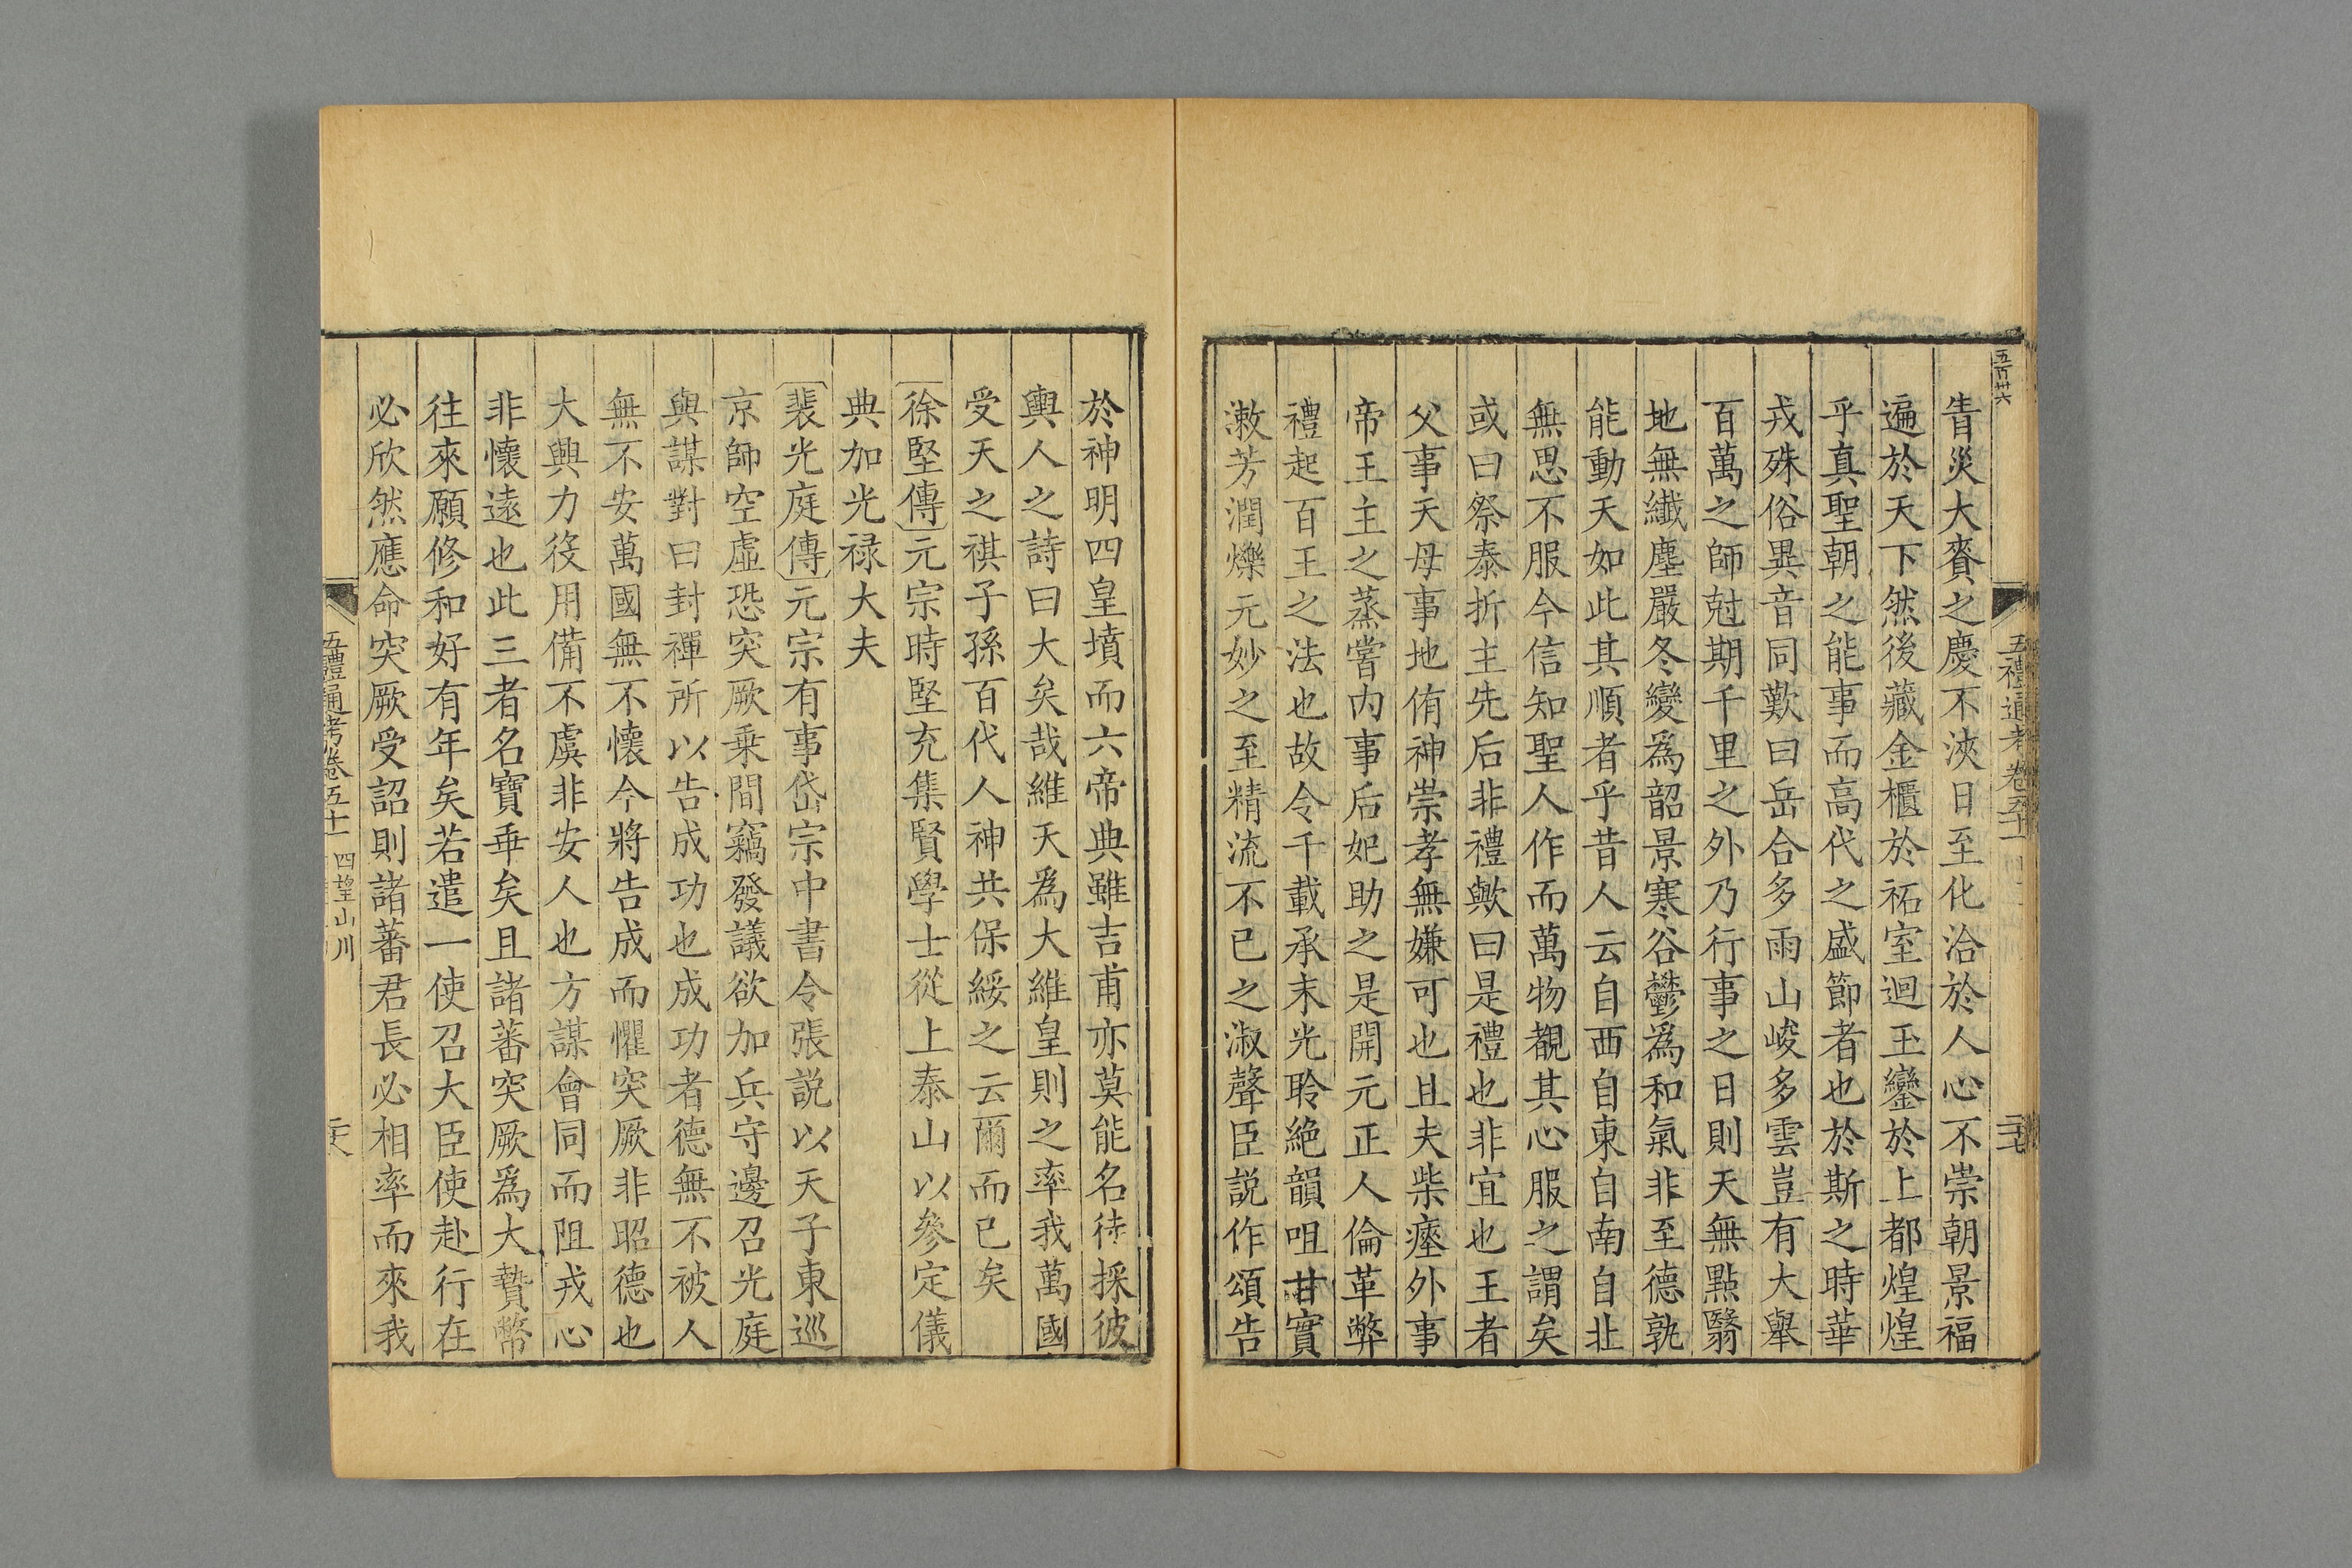 五百卅六
五禮通考卷五十一
眚災大賚之慶不浹日至化洽於人心不崇朝景福
遍於天下然後藏金櫃於祏室迴玉鑾於上都煌煌
乎真聖朝之能事而高代之盛節者也於斯之時華
戎殊俗異音同歎曰岳合多雨山峻多雲豈有大舉
百萬之師尅期千里之外乃行事之日則天無點翳
地無纖塵嚴冬變爲韶景寒谷鬱爲和氣非至德孰
能動天如此其順者乎昔人云自西自東自南自北
無思不服今信知聖人作而萬物覩其心服之謂矣
或曰祭泰折主先后非禮歟曰是禮也非宜也王者
父事天母事地侑神崇孝無嫌可也且夫柴瘞外事
帝王主之蒸嘗内事后妃助之是開元正人倫革弊
禮起百王之法也故令千載承末光聆絶韻咀甘實
漱芳潤爍元妙之至精流不已之淑聲臣説作頌告
於神明四皇墳而六帝典雖吉甫亦莫能名待採彼
輿人之詩曰大矣哉維天爲大維皇則之率我萬國
受天之祺子孫百代人神共保綏之云爾而已矣
徐堅傳元宗時堅充集賢學士從上泰山以參定儀
典加光禄大夫
裴光庭傳元宗有事岱宗中書令張説以天子東巡
京師空虛恐突厥乗間竊發議欲加兵守邊召光庭
與謀對曰封禪所以告成功也成功者德無不被人
無不安萬國無不懷今將告成而懼突厥非昭德也
大興力役用備不虞非安人也方謀會同而阻戎心
非懷遠也此三者名實乖矣且諸蕃突厥爲大贄幣
往來願修和好有年矣若遣一使召大臣使赴行在
必欣然應命突厥受詔則諸蕃君長必相率而來我
五禮通考卷五十一 四望山川